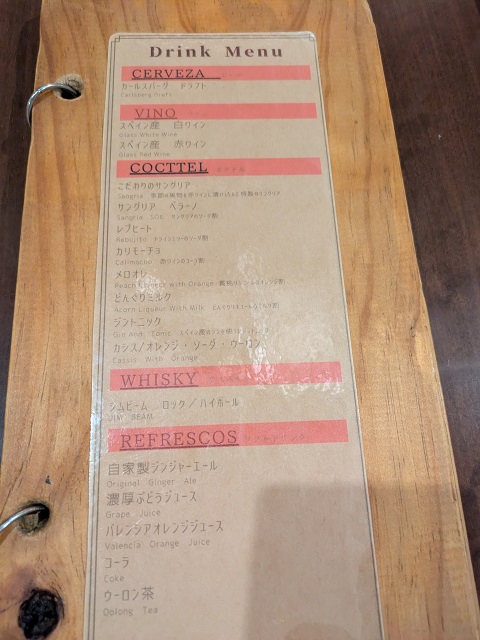 Drink Menu
CERVEZA
カールスバーグ ドラフト
Carlsberg Draft
VINO
スペイン産 白ワイン
Glass White Wine
スペイン産 赤ワイン
Glass Red Wine
COCTTEL カクテル
こだわりのサングリア
Sangria
サングリア ベラーノ
Sangria サングリアのソーダ割
レブヒート
Rebujito
カリモーチョ
Calimocho 赤ワインのコーラ割
メロオレ
Peach Liqueur With Orange
どんぐりミルク
Acorn Liqueur With Milk
ジントニック
Gin And Tonic
カシス/オレンジ・ソーダ・ウーロン
Cassis With Orange
WHISKY
ジムビーム ロック/ハイボール
JIM BEAM
REFRESCOS
自家製ジンジャーエール
Original Ginger Ale
濃厚ぶどうジュース
Grape Juice
バレンシアオレンジジュース
Valencia Orange Juice
コーラ
Coke
ウーロン茶
Oolong Tea